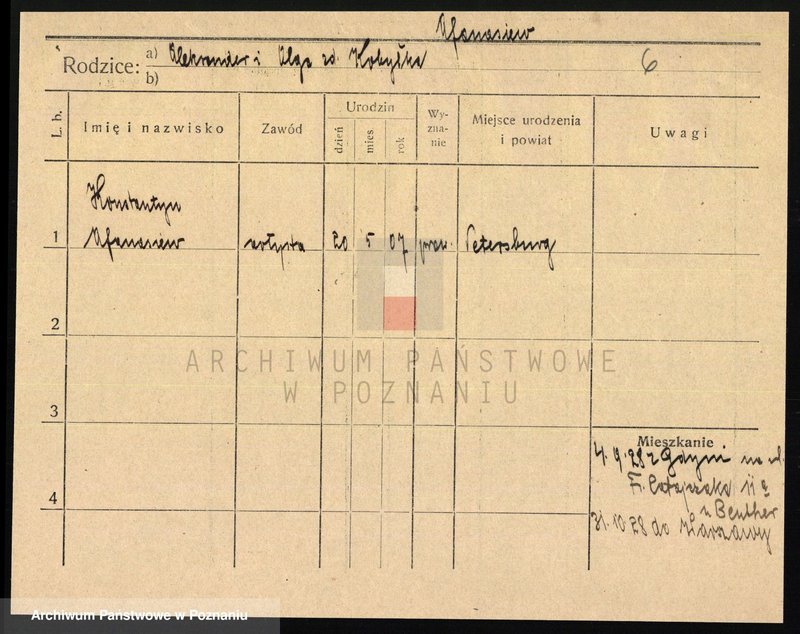 Afanasiew
Rodzice: a) Aleksander i Olga zd. Kobyłka
b)
6
L. b. Imię i nazwisko Zawód Urodzin dzień mies rok Wy-zna-nie Miejsce urodzenia i powiat Uwagi
Konstantyn
1 Afanasiew artysta 20 5 07 praw. Petersburg
2
ARCHIWUM PAŃSTWOWE
W POZNANIU
3
Mieszkanie
4.9.28 z Gdyni na ul.
Fr. Ratajczaka 11a
4
u Beuther
31.10.28 do Warszawy
Archiwum Państwowe w Poznaniu